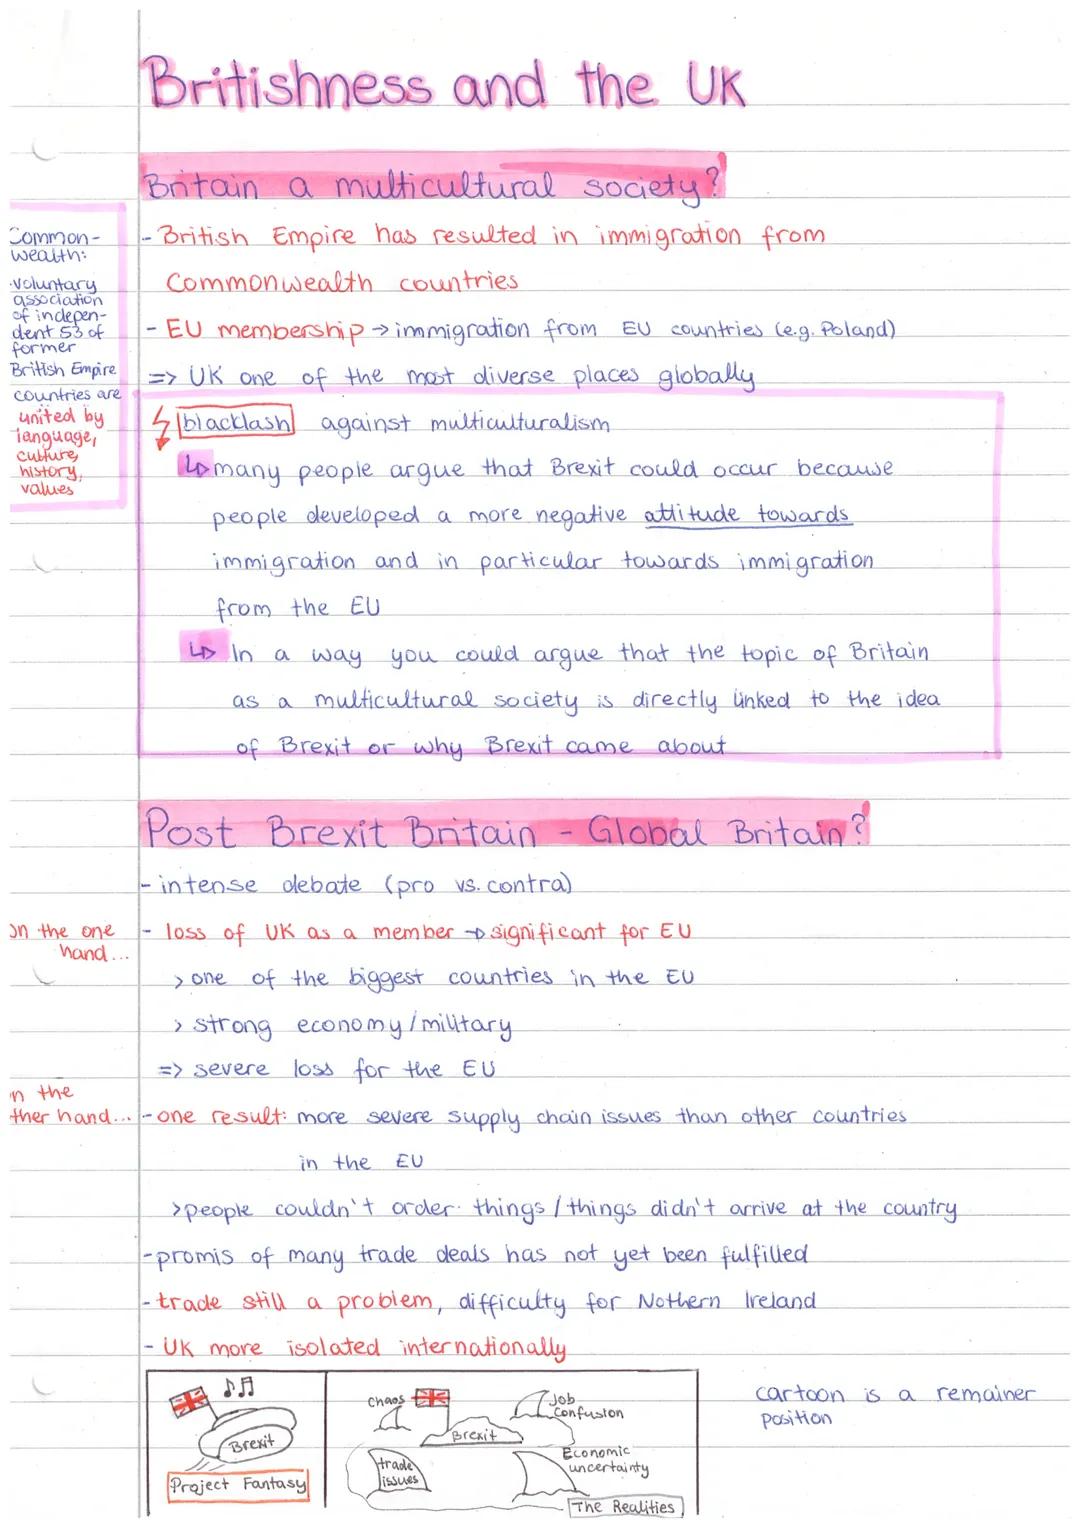 Britishness and the UK
Britain a multicultural society?
Common-
wealth:
·voluntary
association
of indepen-
dent 53 of
former
British Empire
countries are
united by
language,
culture,
history,
values
- British Empire has resulted in immigration from
Commonwealth countries
- EU membership → immigration from EU countries (e.g. Poland)
=> UK one of the most diverse places globally
blacklash against multiculturalism
↳ many people argue that Brexit could occur because
people developed a more negative attitude towards
immigration and in particular towards immigration
from the EU
↳ In a way you could argue that the topic of Britain
as a multicultural society is directly linked to the idea
of Brexit or why Brexit came about
Post Brexit Britain - Global Britain?
- intense debate (pro vs. contra)
On the one
hand...
- loss of UK as a member → significant for EU
> one of the biggest countries in the EU
> strong economy/military
=> severe loss for the EU
n the
ther hand...
- one result: more severe supply chain issues than other countries
in the EU
> people couldn't order things / things didn't arrive at the country
- promis of many trade deals has not yet been fulfilled
- trade still a problem, difficulty for Nothern Ireland
- UK more isolated internationally
Brexit
Project Fantasy
chaos
Job
Confusion
Brexit
trade
issues
Economic
uncertainty
The Realities
cartoon is a remainer
position